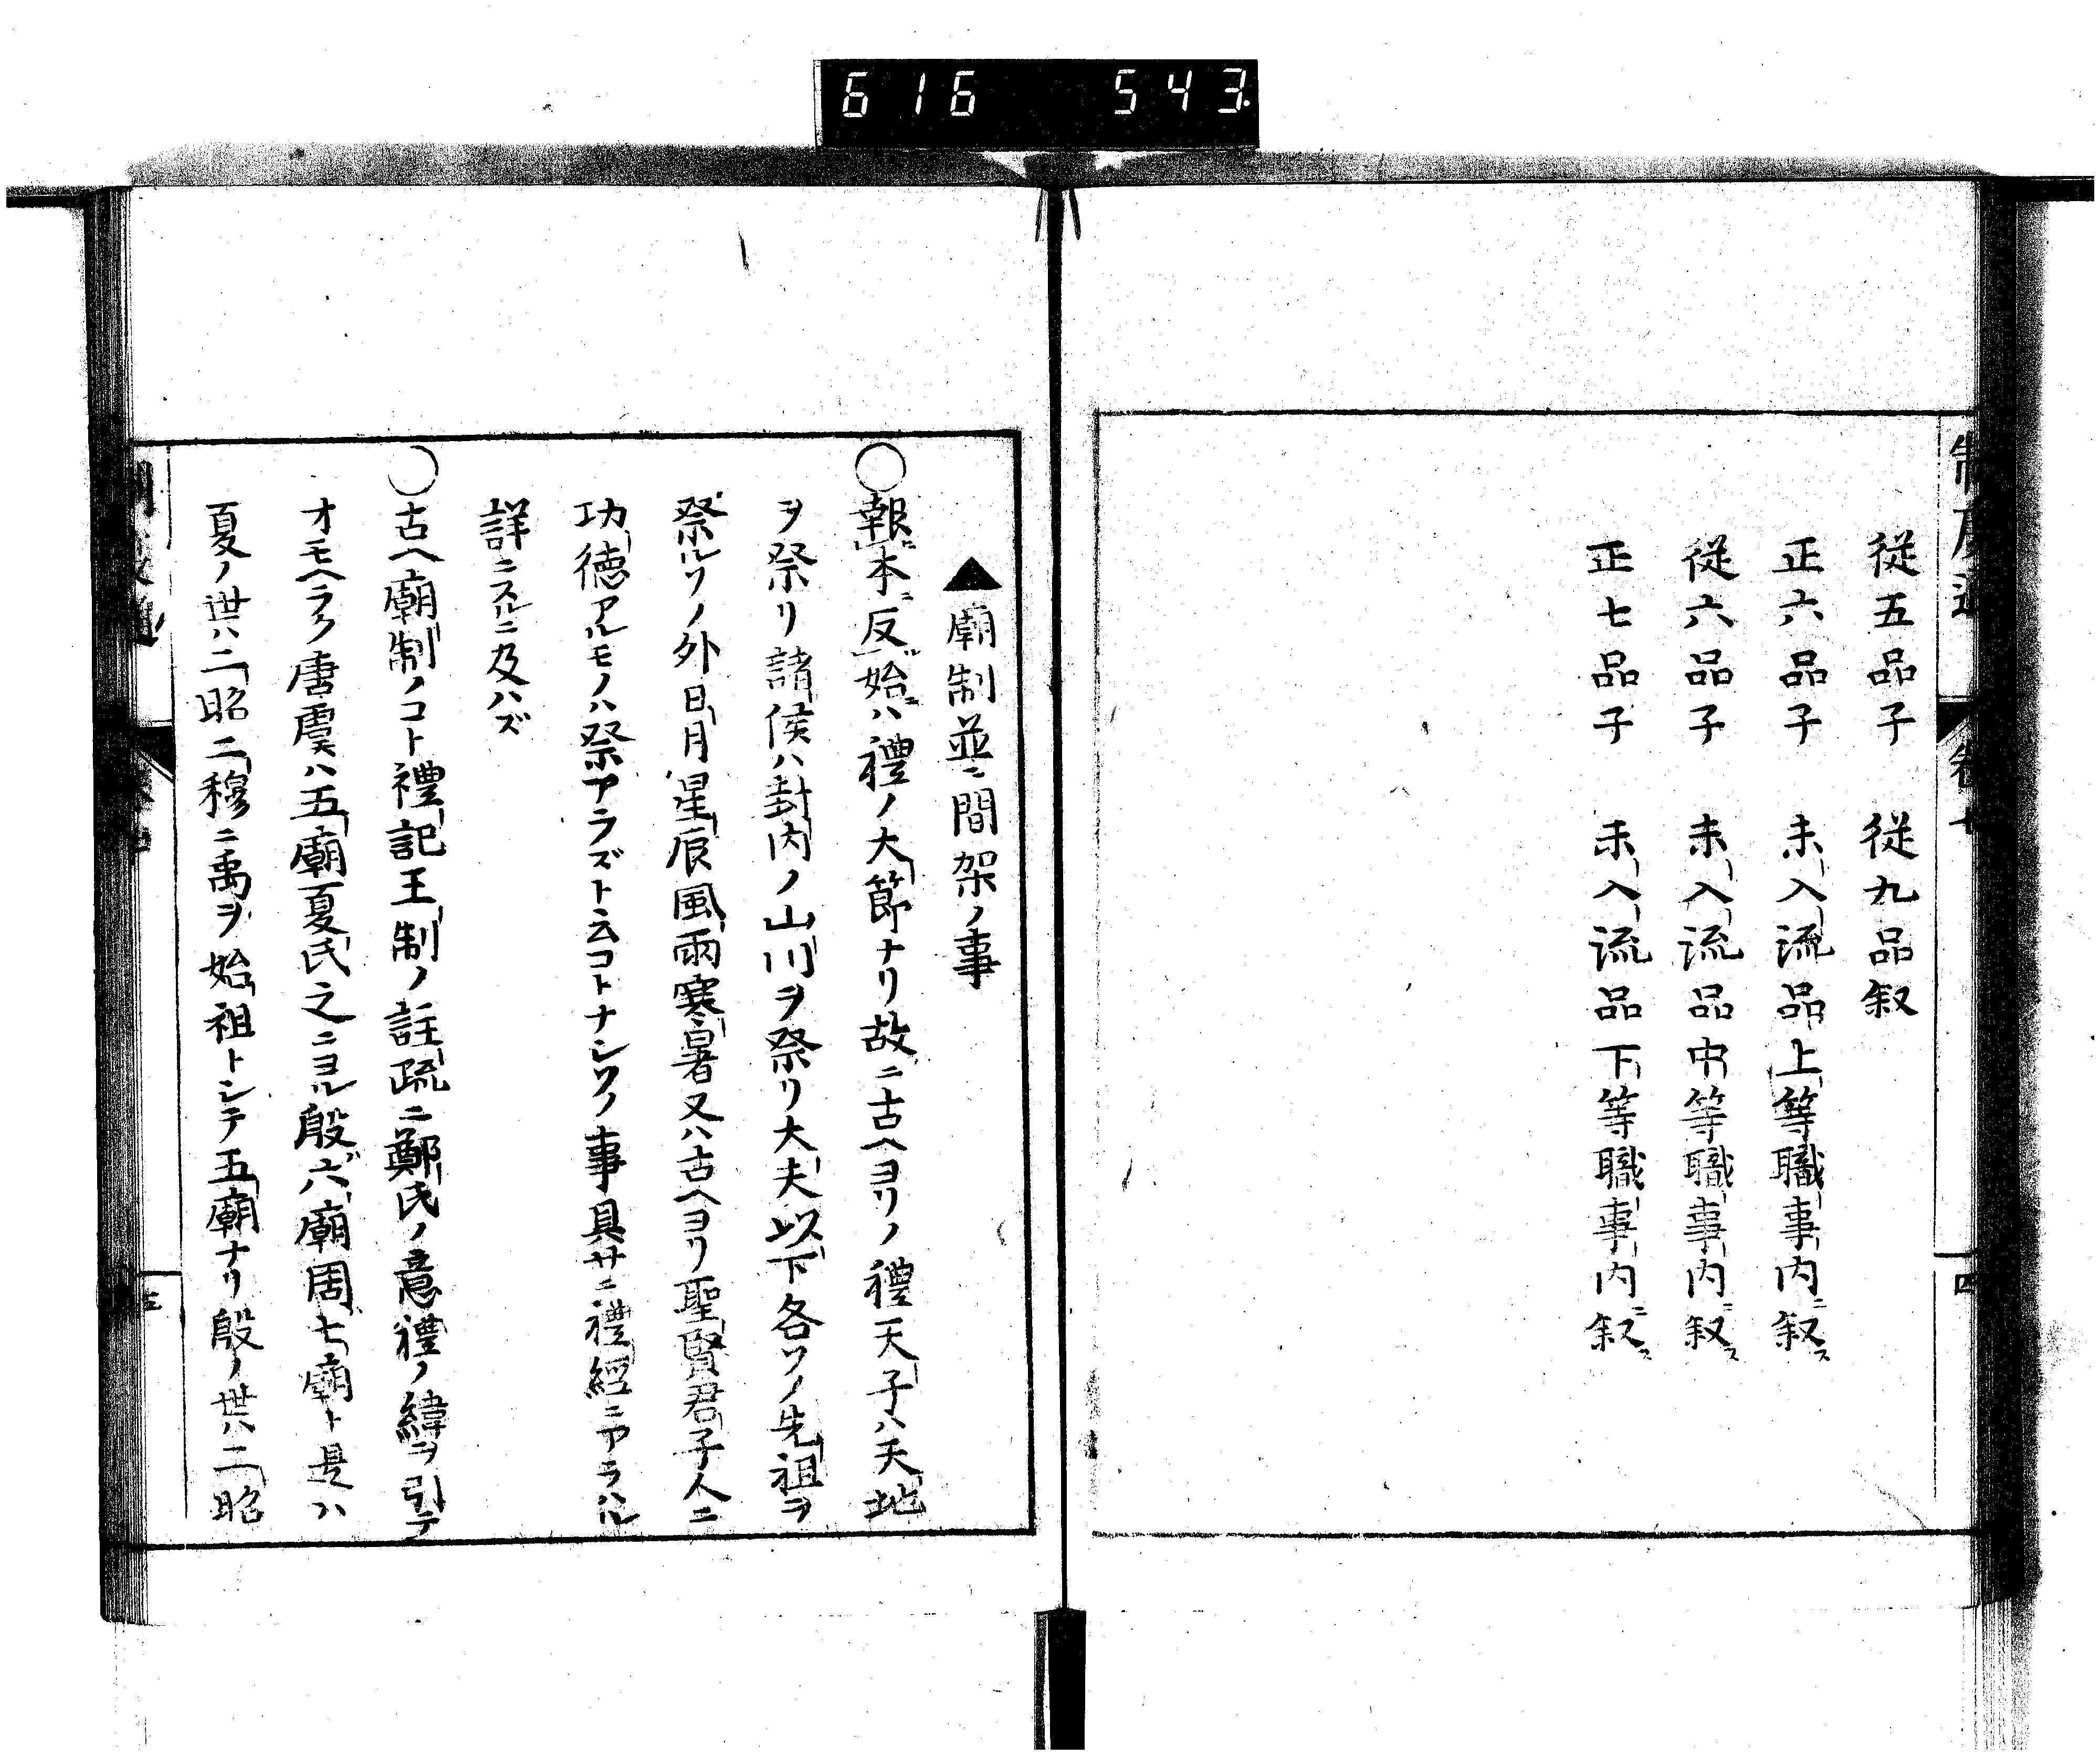 616 543
制度通 卷七 四
從五品子 從九品叙
正六品子 未入流品上等職事内ニ叙ス
從六品子 未入流品中等職事内ニ叙ス
正七品子 未入流品下等職事内ニ叙ス
▲廟制並ニ間架ノ事
○報本反始ハ禮ノ大節ナリ故ニ古ヘヨリノ禮天子ハ天地
ヲ祭リ諸侯ハ封内ノ山川ヲ祭リ大夫以下各ソノ先祖ヲ
祭ルソノ外日月星辰風雨寒暑又ハ古ヘヨリ聖賢君子人ニ
功徳アルモノハ祭アラズト云コトナシソノ事具サニ禮經ニアラハル
詳ニスルニ及ハズ
○古ヘ廟制ノコト禮記王制ノ註疏ニ鄭氏ノ意禮ノ緯ヲ引テ
オモヘラク唐虞ハ五廟夏氏之ニヨル殷六廟周七廟ト是ハ
夏ノ世ハ二昭二穆ニ禹ヲ始祖トシテ五廟ナリ殷ノ世ハ二昭